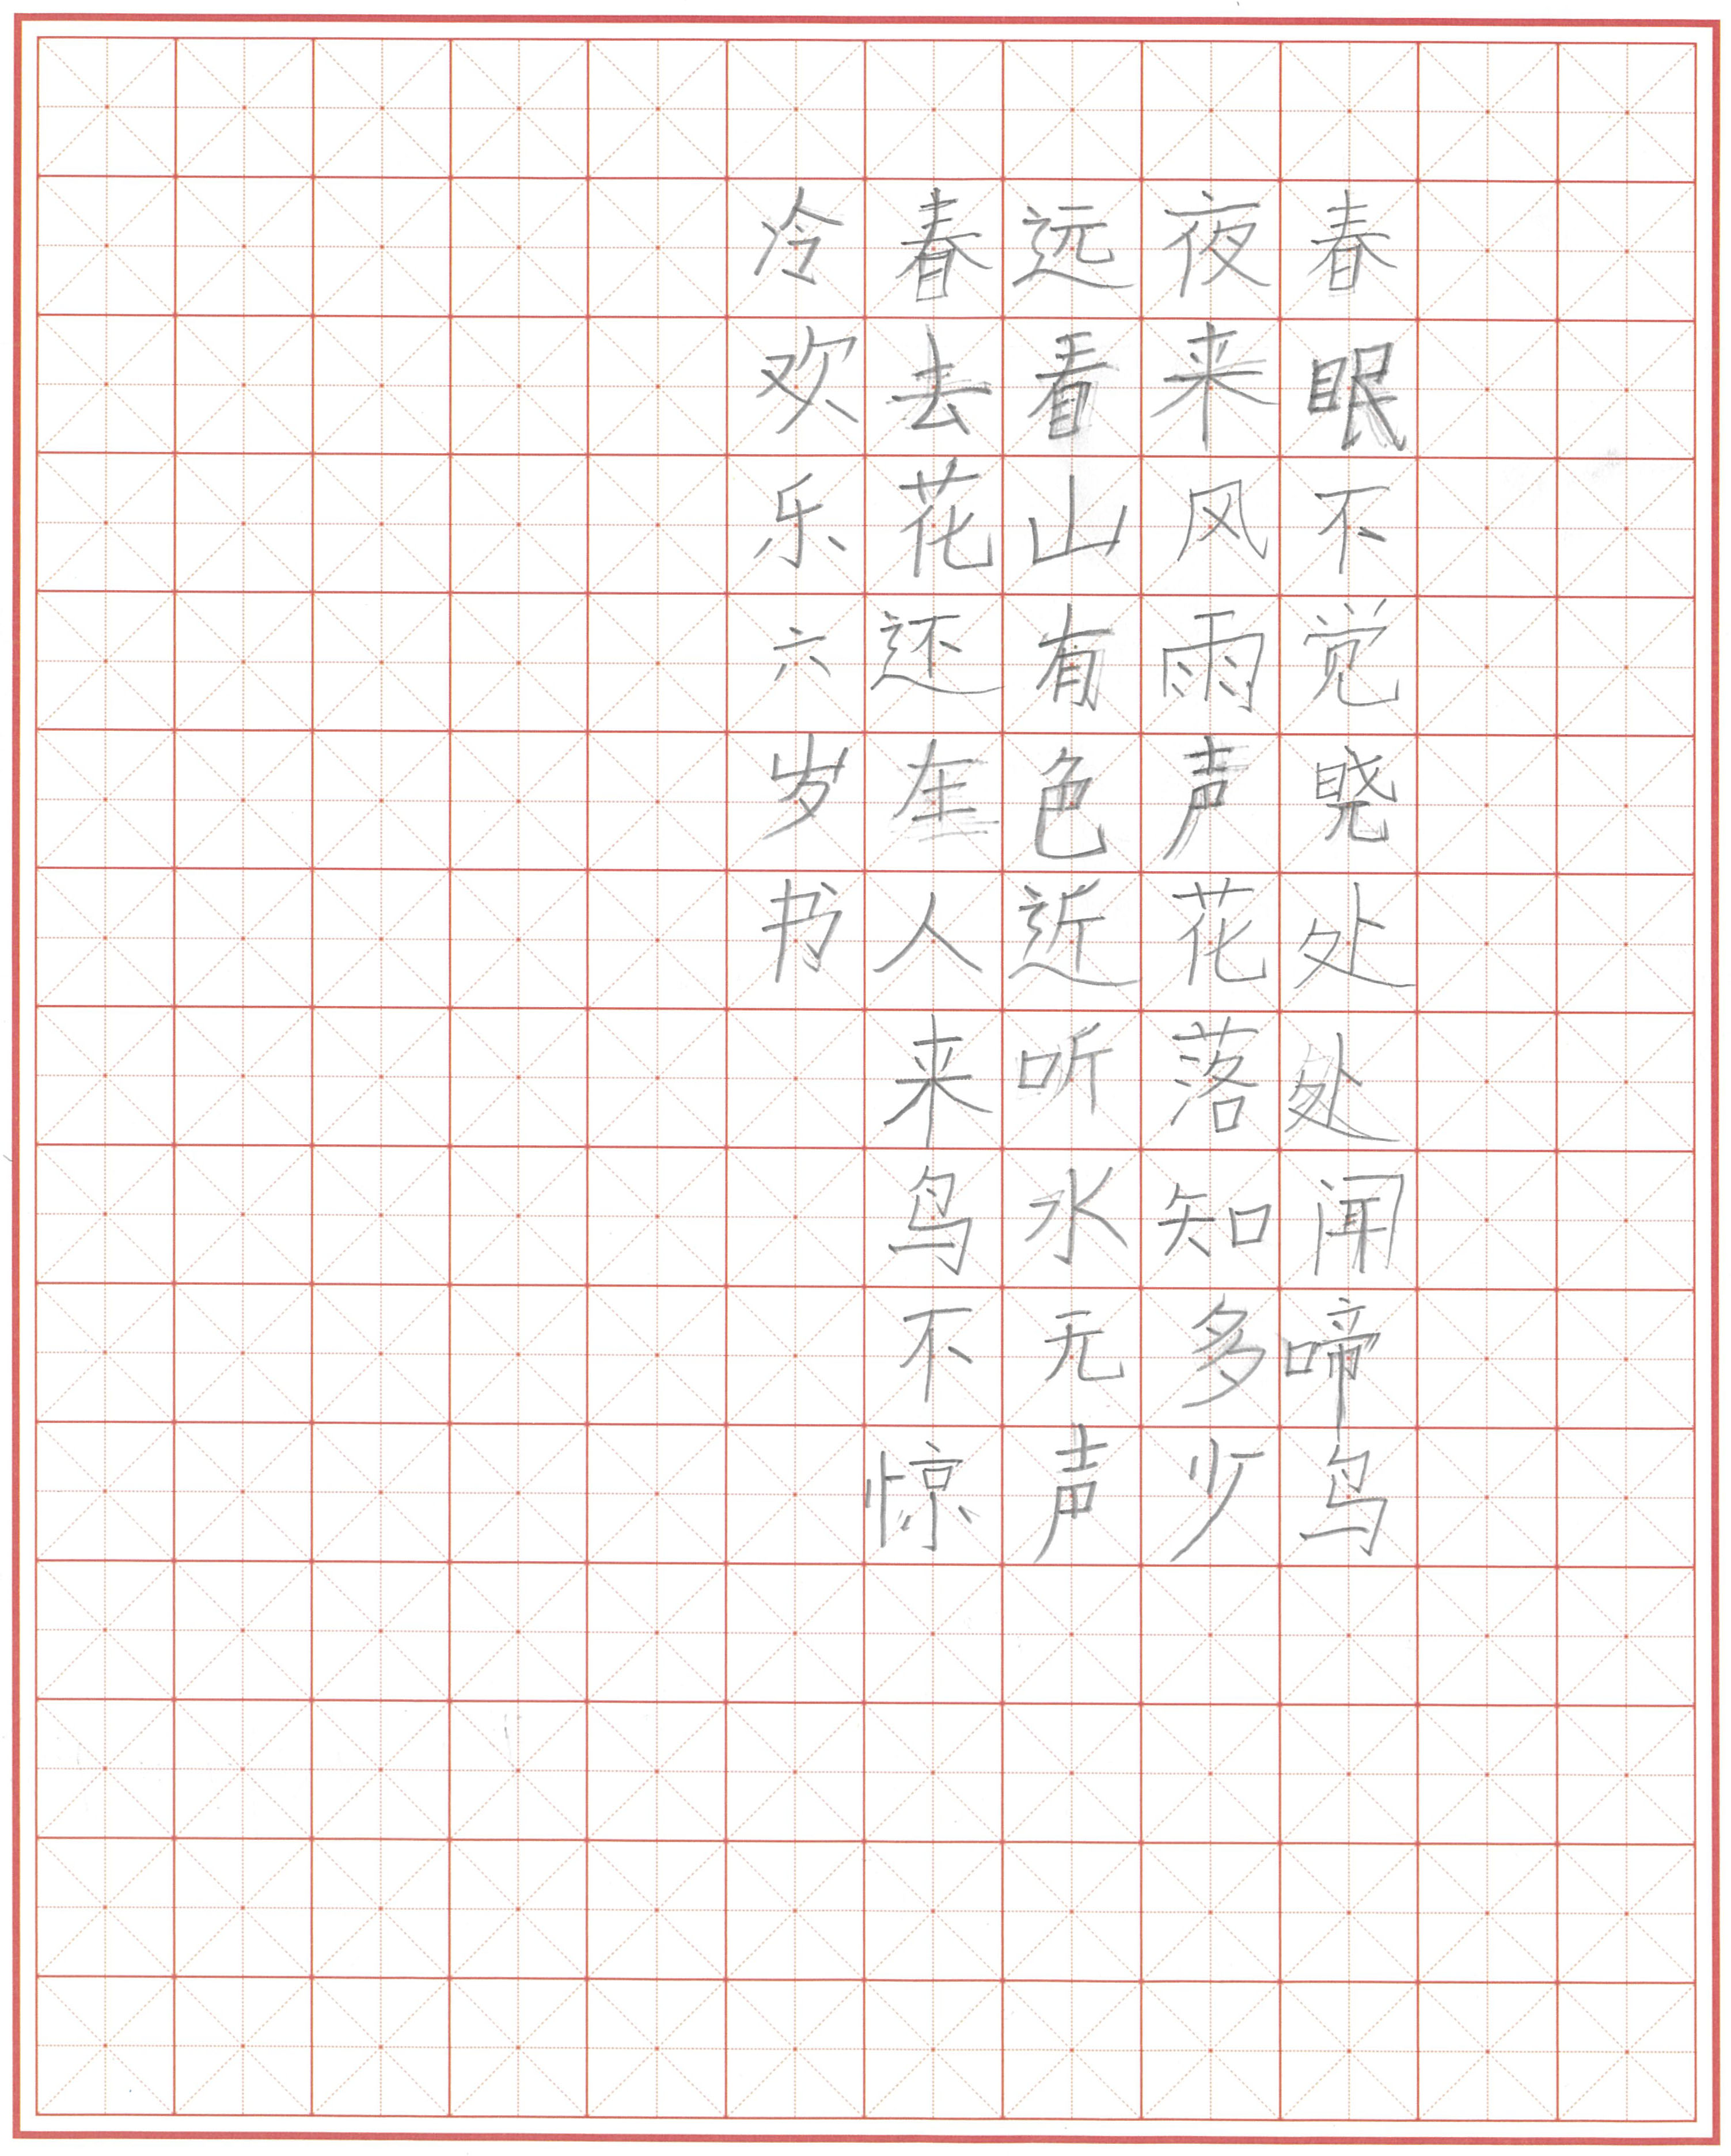 春眠不觉晓处处闻啼鸟
夜来风雨声花落知多少
远看山有色近听水无声
春去花还在人来鸟不惊
冷欢乐六岁书